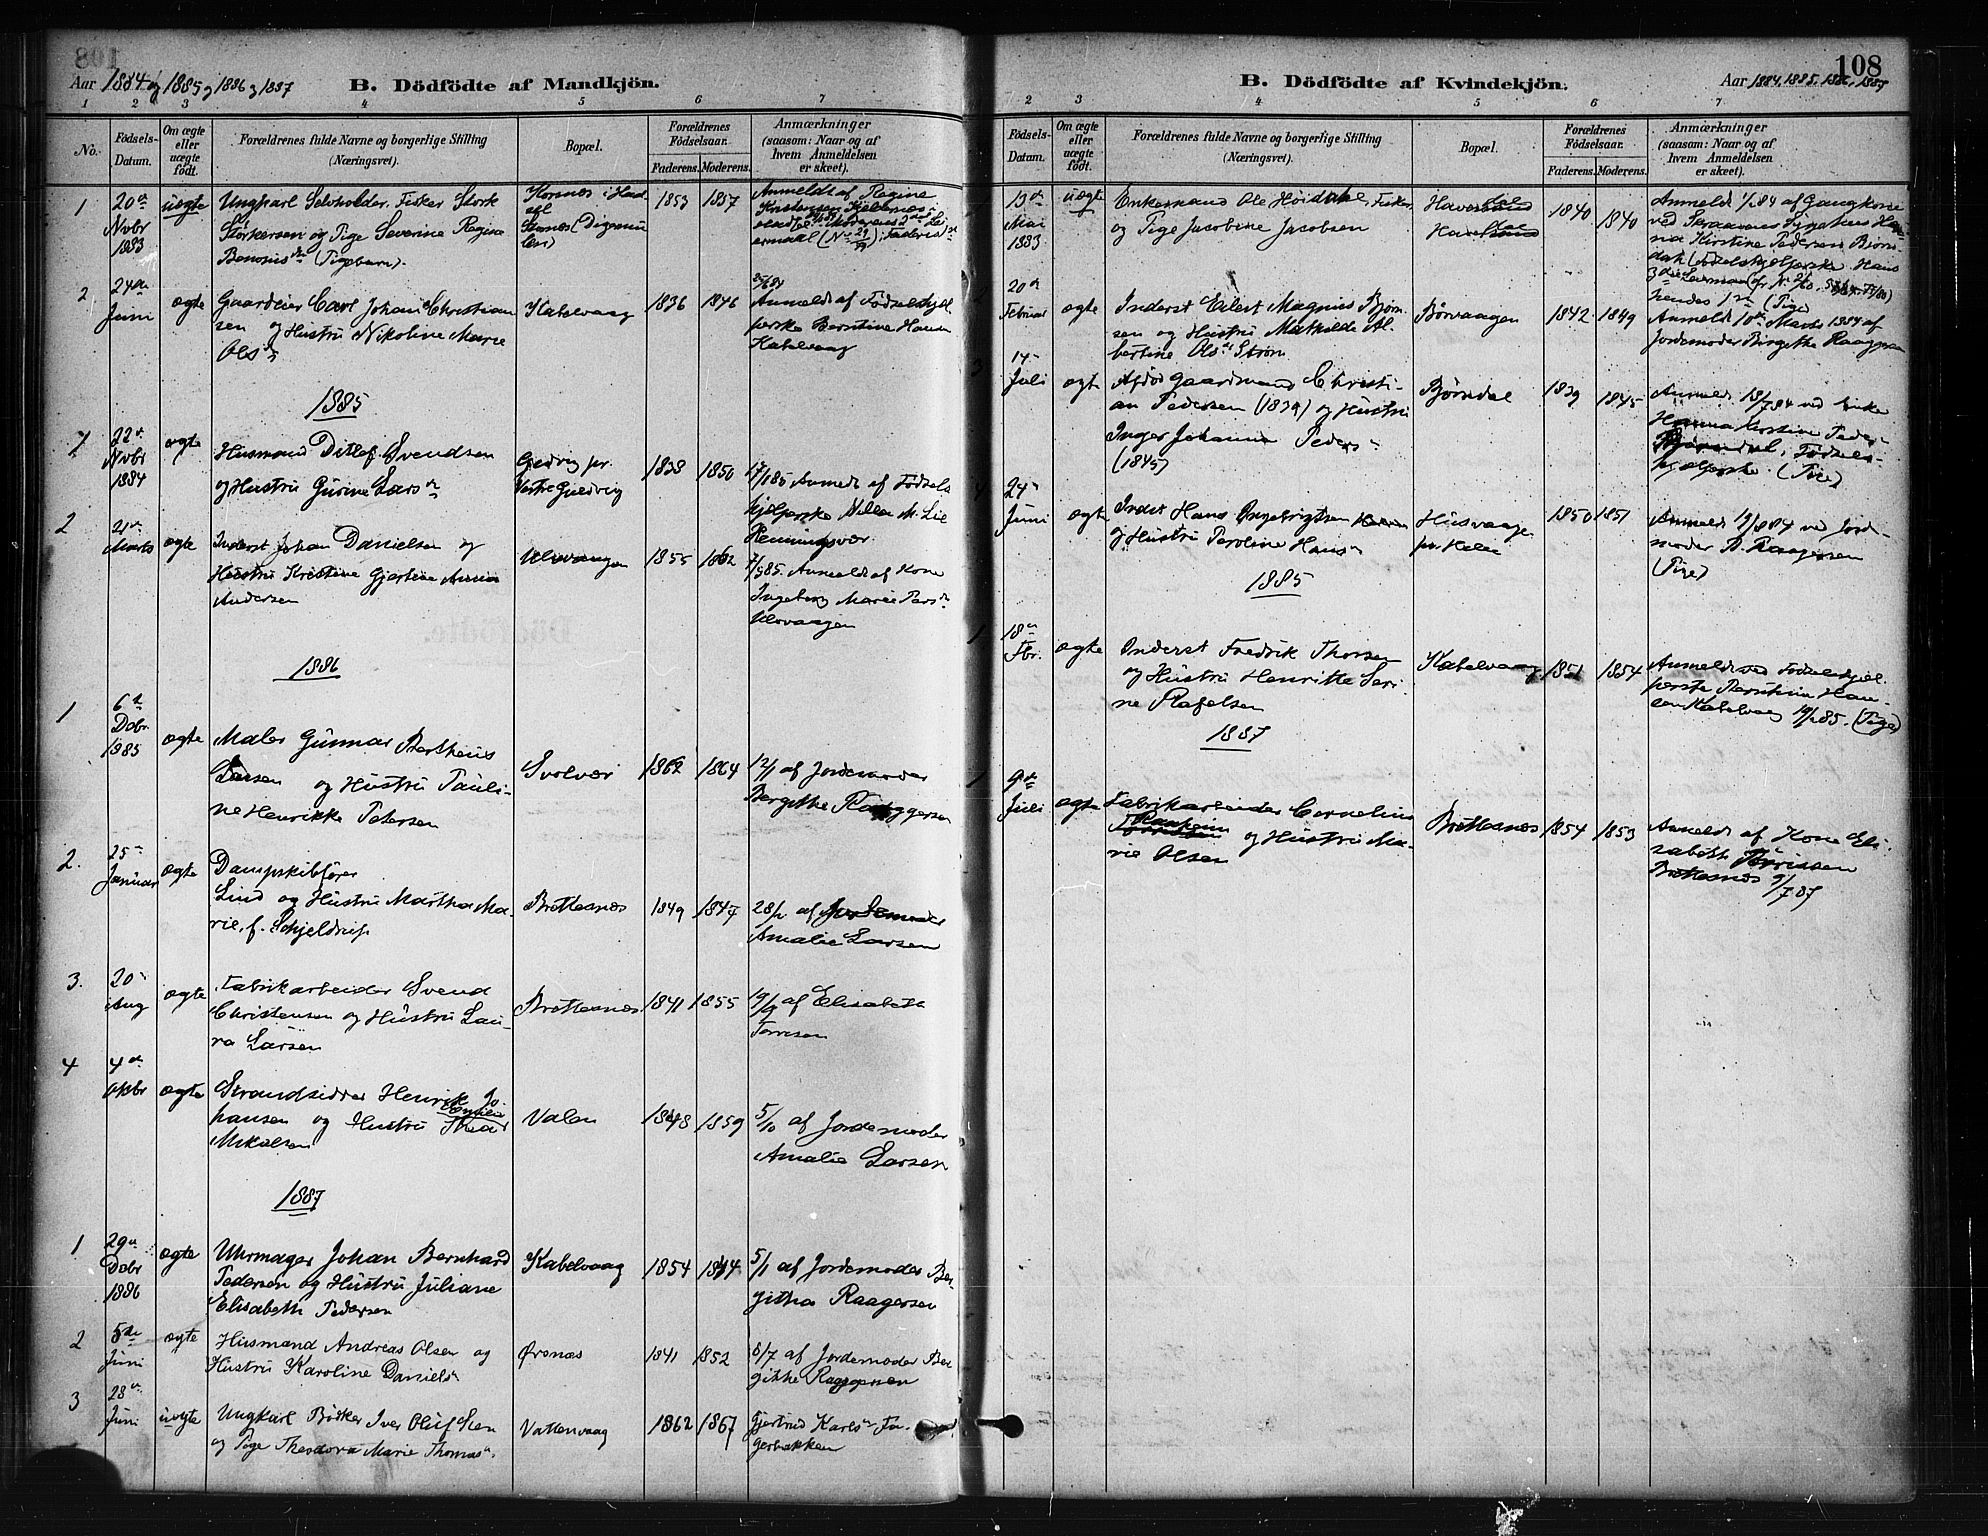 Aar 1884 og 1885 og 1886 og 1887
B. Dödfödte af Mandkjön.
1 2 3 4 5 6 7
No.
Födsels-
Datum.
Om ægte
eller
uægte
født.
Forældrenes fulde Navne og borgerlige Stilling
(Næringsvei).
Bopæl.
Forældrenes
Fødselsaar.
Faderens. Moderens.
Anmærkninger
(saasom: Naar og af
hvem Anmeldelsen
er skeet).
1
20de
Nvbr
1883
uægte
Ungkarl Selvholder, Fisker Stork
Storkersen og Pige Severine Regine
1853
1857
Anmeldt af Regine
2
24de
Juni
ægte
Gaardeier Carl Johan Christian
sen og Hustru Nikoline Marie
Olsdr
Kabelvaag
1836
1846
Anmeldt af Fødselshjel
perske Berntine Hansen
Kabelvaag
1885
1
22de
Nvbr
1884
ægte
Husmand Ditlef Svendsen
og Hustru Gurine Larsdr
Gudvig pr.
Vestre Guldvig
1838
1850
17/1 85 Anmeldt af Fødsels
hjelperske
2
21de
Marts
ægte
Inderst Johan Danielsen og
Hustru Kristine Gjertine Anna
Andersen
Ulvaagen
1855
1862
7/5 85. Anmeldt af Kone
Ingeborg Marie
1886
1
6te
Dcbr
1885
ægte
Maler Gunnar Bertheus
Larsen og Hustru Pauli-
ne Henrikke Petersen
Svolvær
1862
1864
12/1 af Jordemoder
Bergithe Raaggersen
2.
25de
Januar
ægte
Dampskibsfører
Lind og Hustru Martha Ma-
rie, f. Schjeldrup
Brettesnæs
1849
1847
28/1 af Jordemoder
Amalie Larsen
3.
20de
Aug
ægte
Fabrikarbeider Svend
Christensen og Hustru Lau-
ra Larsen
Brettesnæs
1841
1855
19/9 af Elisabeth
Torresen
4
4de
Okbr
ægte
Strandsidder Henrik Jo-
hansen og Hustru
Mikalsen
Valen
1848
1859
5/10 af Jordemoder
Amalie Larsen
1887
1
29de
Dcbr
1886
ægte
Uhrmager Johan Bernhard
Pedersen og Hustru Juliane
Elisabeth Pedersen
Kabelvaag
1854
1844
5/1 af Jordemoder Ber-
githa Raagersen
2
5te
Juni
ægte
Husmand Andreas Olsen og
Hustru Karoline Danielsdr
Ørsnæs
1841
1852
8/7 af Jordemoder Ber
githe Raggersen
3
28de
Juni
uægte
Ungkarl Bødker Iver Oluf
og Pige Theodora Marie Thomasdr
Vattenvaag
1862
1867
Gjertrud Karlsdr Fa-
gerbakken
108
B. Dödfödte af Kvindekjön.
Aar 1884, 1885, 1886, 1887
2 3 4 5 6 7
Födsels-
Datum.
Om ægte
eller
uægte
født.
Forældrenes fulde Navne og borgerlige Stilling
(Næringsvei).
Bopæl.
Forældrenes
Födselsaar.
Faderens. Moderens.
Anmærkninger
(saasom: Naar og af
hvem Anmeldelsen
er skeet).
13de
Mai
1883
uægte
Enkemand Ole Høidahl, Fisker,
og Pige Jacobine Jacobsen
1840
1840
20de
Februar
ægte
Inderst Eilert Magnus Bjørn
sen og Hustru Mathilde Al-
bertine Olsdr Strøm
Børvaagen
1842
1849
Anmeldt 10de Marts 1884 af
Jordemoder Birgithe Raaggesen
3
14de
Juli
ægte
Afdøde Gaardmand Christi-
an Pedersen (1839) og Hustru
Inger Johanna Pedersdr
(1845)
Bjørndal
1839
1845
Anmeldt 18/7 84 ved Enke
Hanna Kerstine Peders-
Bjørndal, Fødsels-
hjælperske. (Pige)
4
24de
Juni
ægte
Inderst Hans Ingebrigtsen
og Hustru Peroline Hansdr
Husvaage
pr. Helle
1850
1851
Anmeldt 19/8 84 ved Jord-
moder B. Raagersen
(Pige)
1885
1
18de
Fbr.
ægte
Inderst Fredrik Thorsen
og Hustru Henritte Seri-
ne Rafelsen
Kabelvaag
1851
1854
Anmeldt ved Fødselshjel
perske Berntine Han-
sen Kabelvaag 19/2 85. (Pige)
1887
1
9de
Juli
ægte
Fabrikarbeider Cornelius
og Hustru Ma-
rie Olsen
Brettesnæs
1854
1853
Anmeldt af Kone Eli-
sabeth Torrissen
Brettesnæs 9/7 87